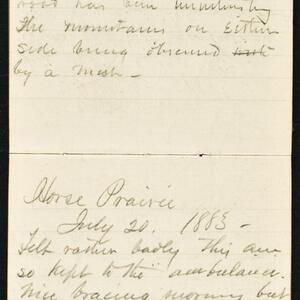 road has been uninteresting
the mountains on either
side being obscured
by a mist —
Horse Prairie
July 20. 1883 —
Felt rather badly this am
so kept to the ambulance.
Nice bracing morning but